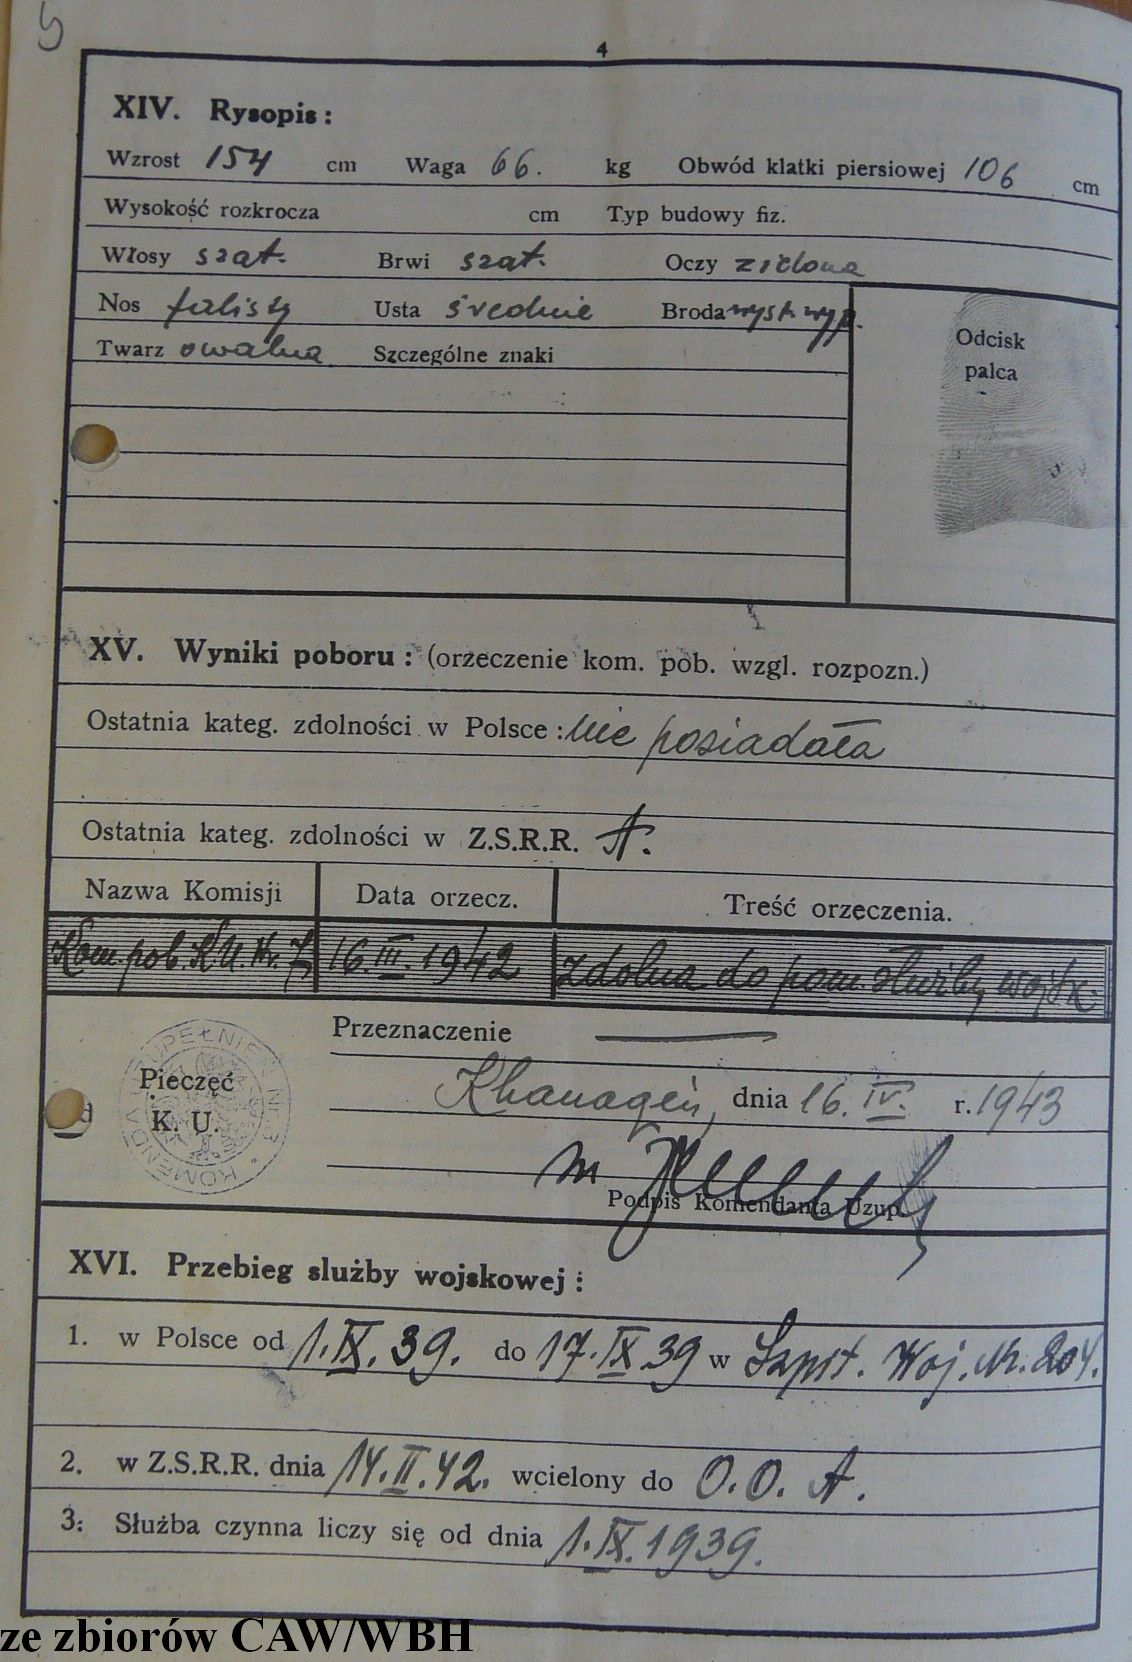 5
4
XIV. Rysopis :
Wzrost 154 cm Waga 66. kg Obwód klatki piersiowej 106 cm
Wysokość rozkrocza cm Typ budowy fiz.
Włosy szat. Brwi szat. Oczy zielone
Nos falisty Usta średnie Broda wyst. wyp.
Twarz owalna Szczególne znaki
Odcisk
palca
XV. Wyniki poboru : (orzeczenie kom. pob. wzgl. rozpozn.)
Ostatnia kateg. zdolności w Polsce : nie posiadała
Ostatnia kateg. zdolności w Z.S.R.R. A.
Nazwa Komisji Data orzecz. Treść orzeczenia.
Kom. pob. K.U. Nr. 7 16.III.1942 zdolna do pom. służby wojsk.
Przeznaczenie —
KOMENDA UZUPEŁNIEŃ NR 3
Pieczęć
K. U.
Khanaqin, dnia 16.IV. r. 1943
Podpis Komendanta Uzup.
XVI. Przebieg służby wojskowej :
1. w Polsce od 1.IX.39. do 17.IX 39 w Szpit. Woj. Nr. 204.
2. w Z.S.R.R. dnia 14.II.42. wcielony do O.O.A.
3. Służba czynna liczy się od dnia 1.IX.1939.
ze zbiorów CAW/WBH